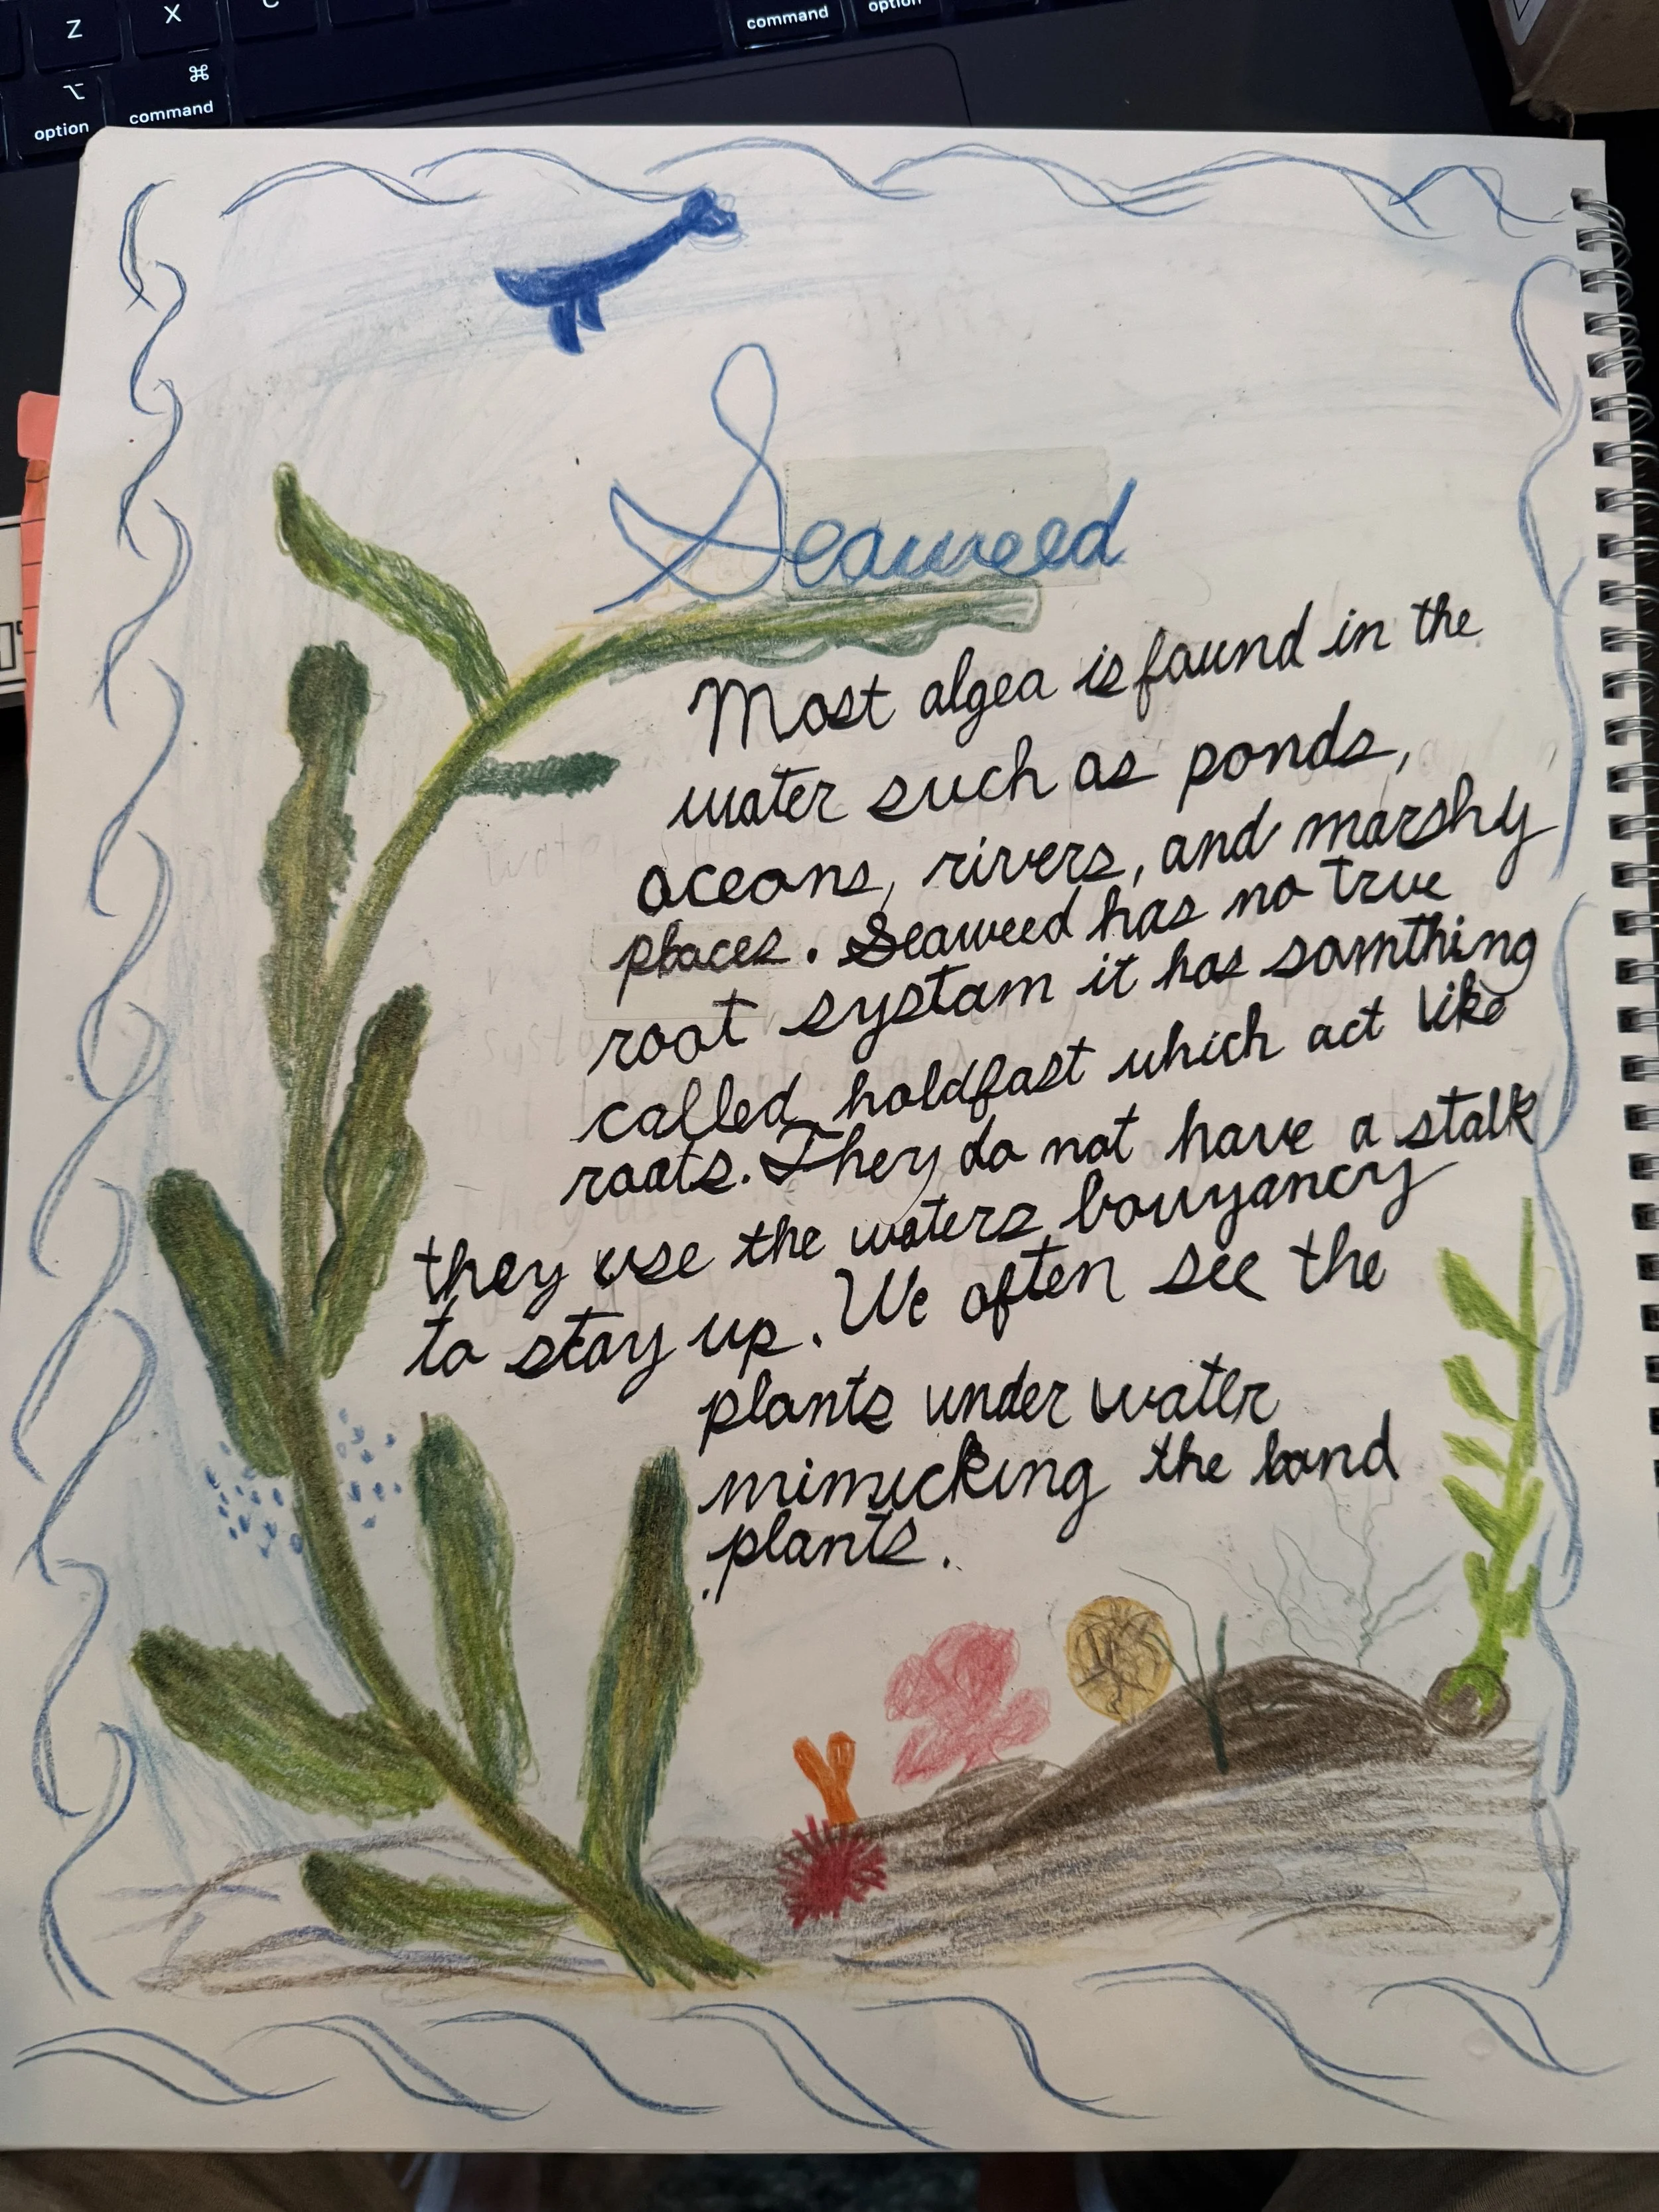 Z X C command option
⌥ ⌘
option command
Seaweed
Most algea is found in the
water such as ponds,
oceans, rivers, and marshy
places. Seaweed has no true
root systam it has somthing
called holdfast which act like
roots. They do not have a stalk
they use the waters bouyancy
to stay up. We often see the
plants under water
mimicking the land
plants.